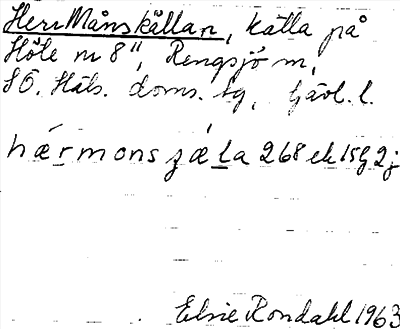 Herr Månskällan, källa på
Höle nr 8", Rengsjö sn,
SÖ. Häls. doms. tg, Gävl. l.
hærmonsʒæla 268 ek 15b 2j
Elsie Rondahl 1963